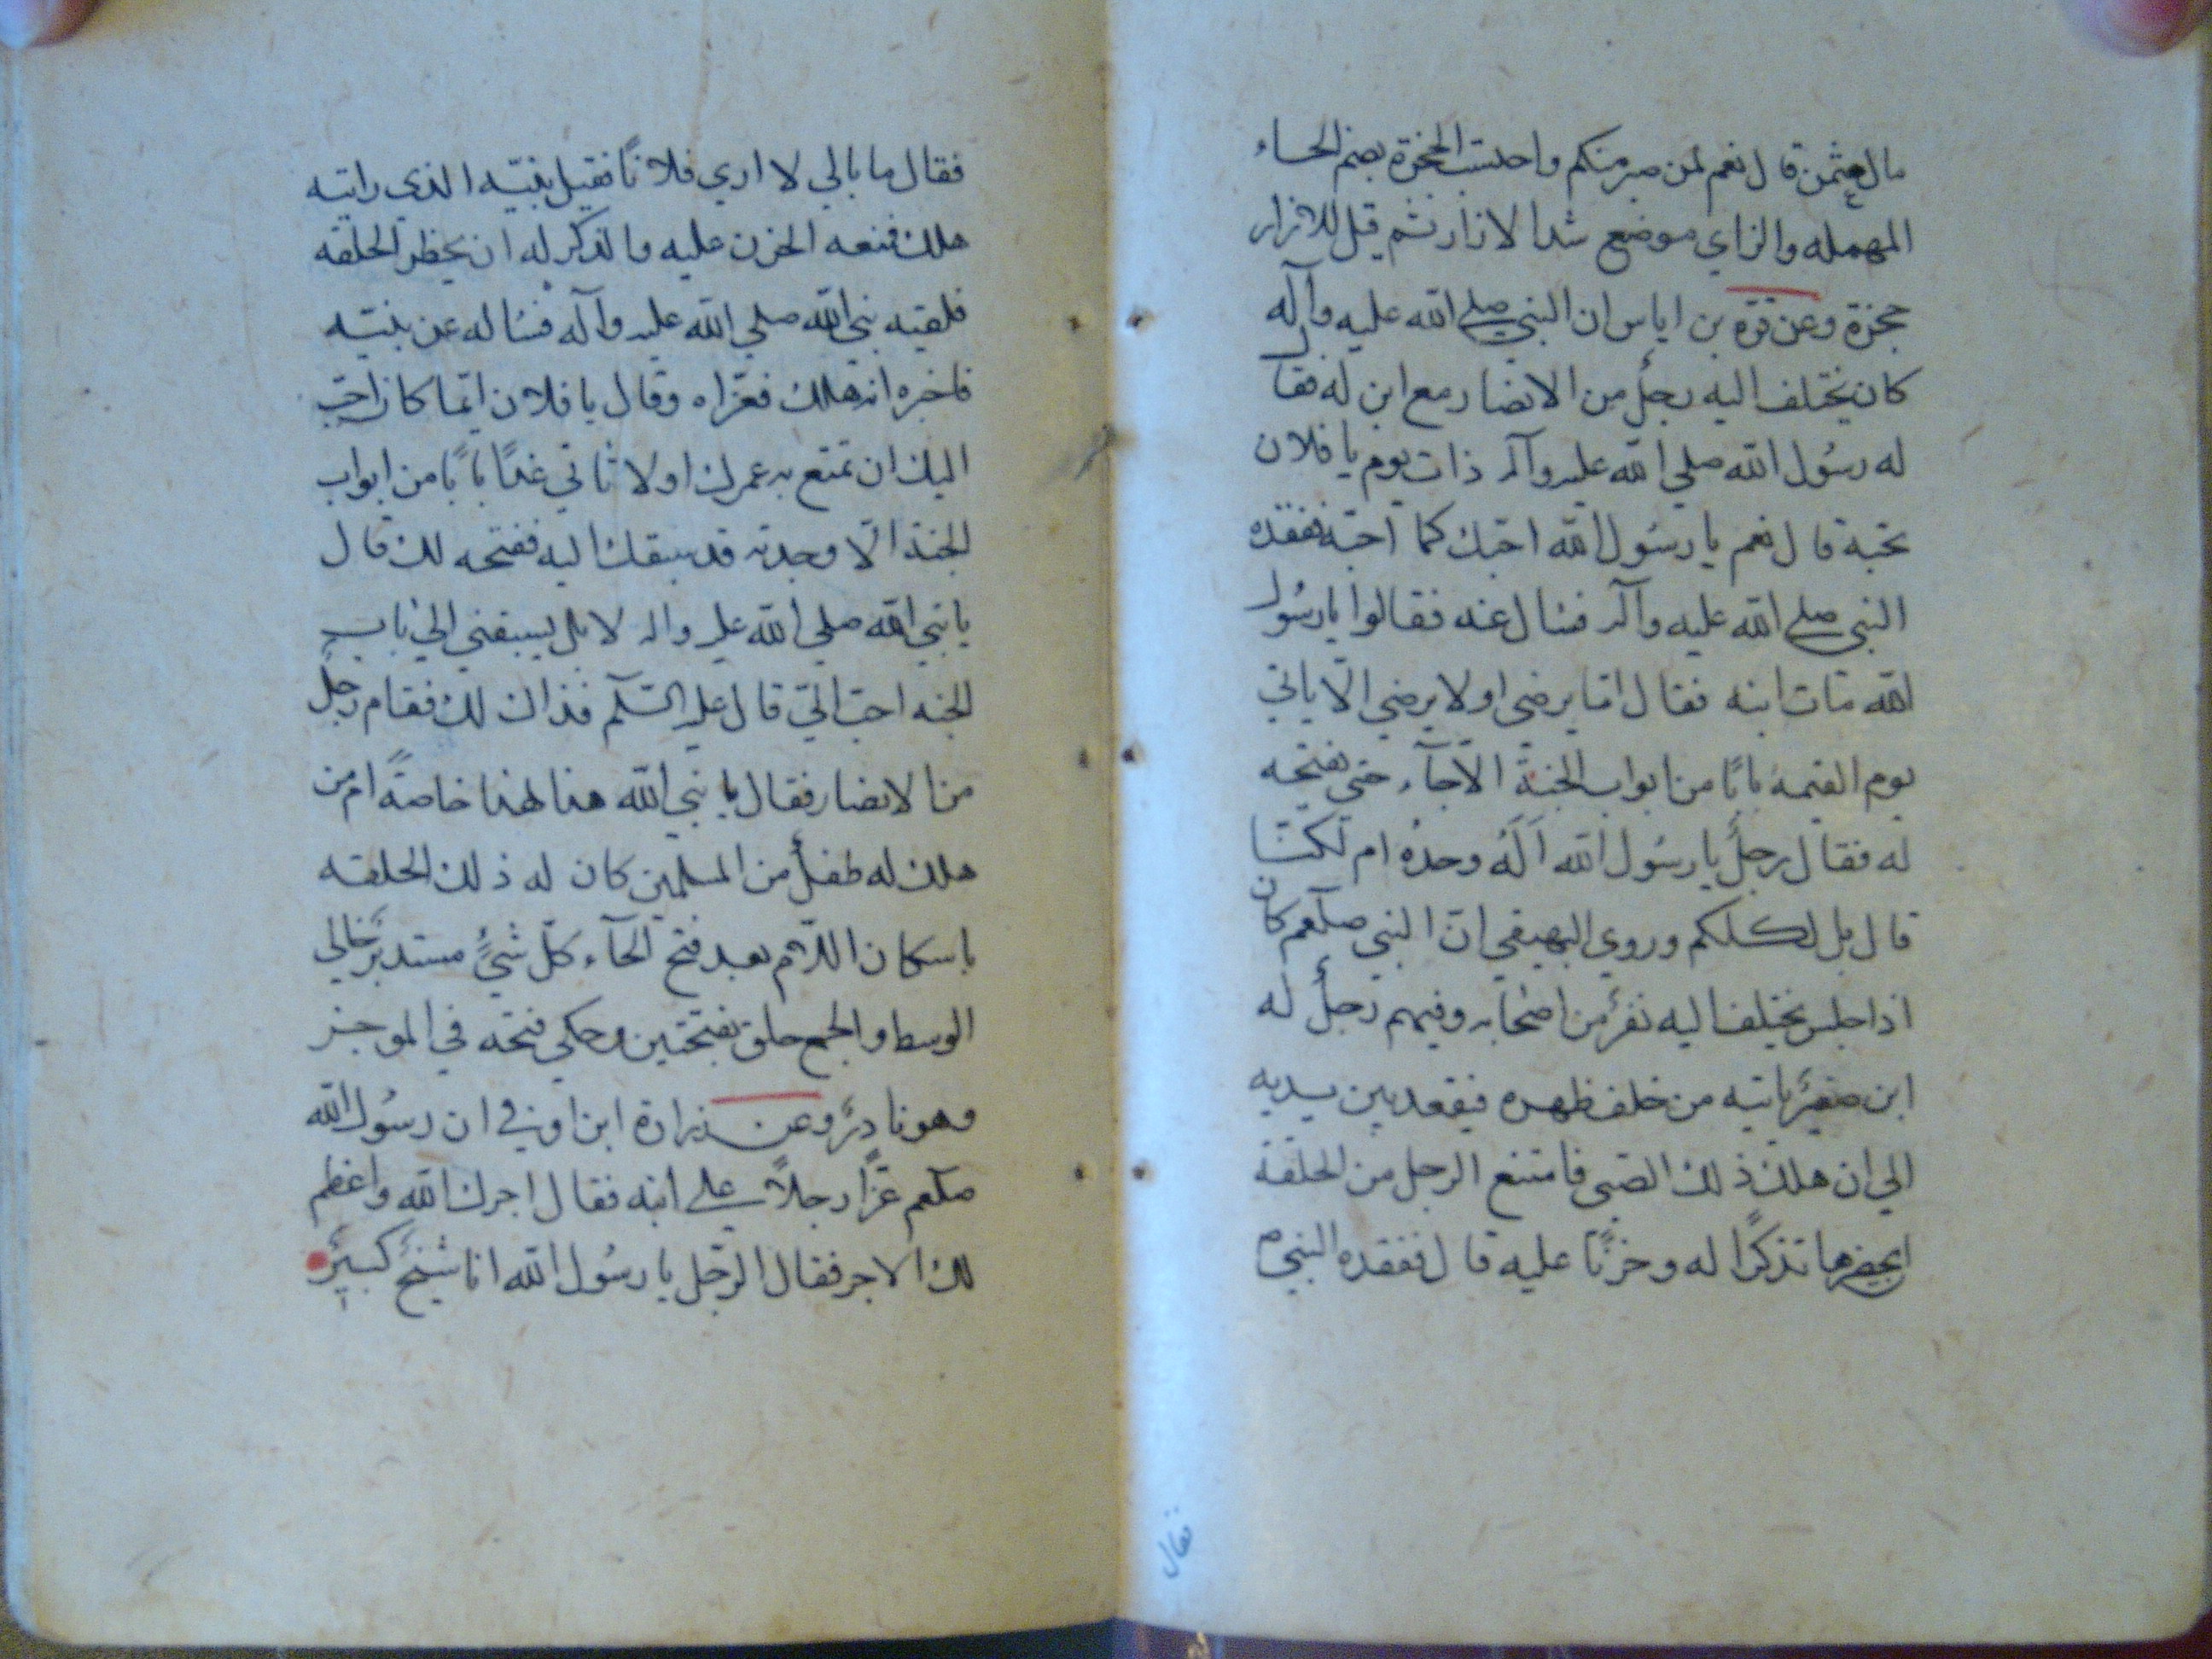 مال عثمن قال نعم لمن صبر منكم واحتسب الحجزة بضم الحاء
المهمله والزاي موضع شد الازار ثم قيل للازار
حجزة وعن قرة بن اياس ان النبي صلى الله عليه وآله
كان يختلف اليه رجلٌ من الانصار مع ابن له فقال
له رسُول الله صلي الله عليه وآله ذات يوم يا فلان
تحبة قال نعم يا رسُول الله احبّك كما احبّه ففقده
النبي صلى الله عليه وآله فسال عنه فقالوا يا رسُول
الله مات ابنه فقال اما يرضى اولا يرضي الّا ياتي
يوم القيمة بابًا من ابواب الجنة الّا جآء حتي يفتحه
له فقال رجلٌ يا رسُول الله اَلَهُ وحدهُ ام لكلنا
قال بل لكلكم وروي البهيقي انّ النبي صلعم كان
اذا جلس يختلف اليه نفرٌ من اصحابه وفيهم رجلٌ له
ابن صغيرٌ ياتيه من خلف ظهره فيقعد بين يديه
الي ان هلك ذلك الصبي فامتنع الرجل من الحلقة
ان يحضرها تذكرًا له وحزنًا عليه قال ففقده النبي م
فقال
فقال ما بالي لا اري فلانًا فقيل بنيّه الذى رايته
هلك فمنعه الحزن عليه والذكر له ان يحضر الحلقه
فلقيه نبي الله صلي الله عليه وآله فساله عن بنيّه
فاخبره انه هلك فعزّاه وقال يا فلان ايّما كان احبّ
اليك ان تمتع به عمرك اولا تاتي غدًا بابًا من ابواب
الجنة الّا وجدته قد سبقك اليه ففتحه لك قال
يا نبي الله صلي الله عليه واله لا بل يسبقني الي باب
الجنه احبّ اليّ قال عليه السّلم فذاك لك فقام رجلٌ
من الانصار فقال يا نبي الله هذا لهذا خاصةً ام من
هلك له طفلٌ من المسلمين كان له ذلك الحلقه
باسكان اللّام بعد فتح الحآء كلّ شيءٍ مستديرٍ خالي
الوسط والجمع حلق بفتحتين وحكي فتحه في الموجز
وهو نادرٌ وعن زرارة ابن اوفي ان رسُول الله
صلعم عزّا رجلاً علي ابنه فقال اجرك الله واعظم
لك الاجر فقال الرجل يا رسُول الله انا شيخٌ كبيرٌ